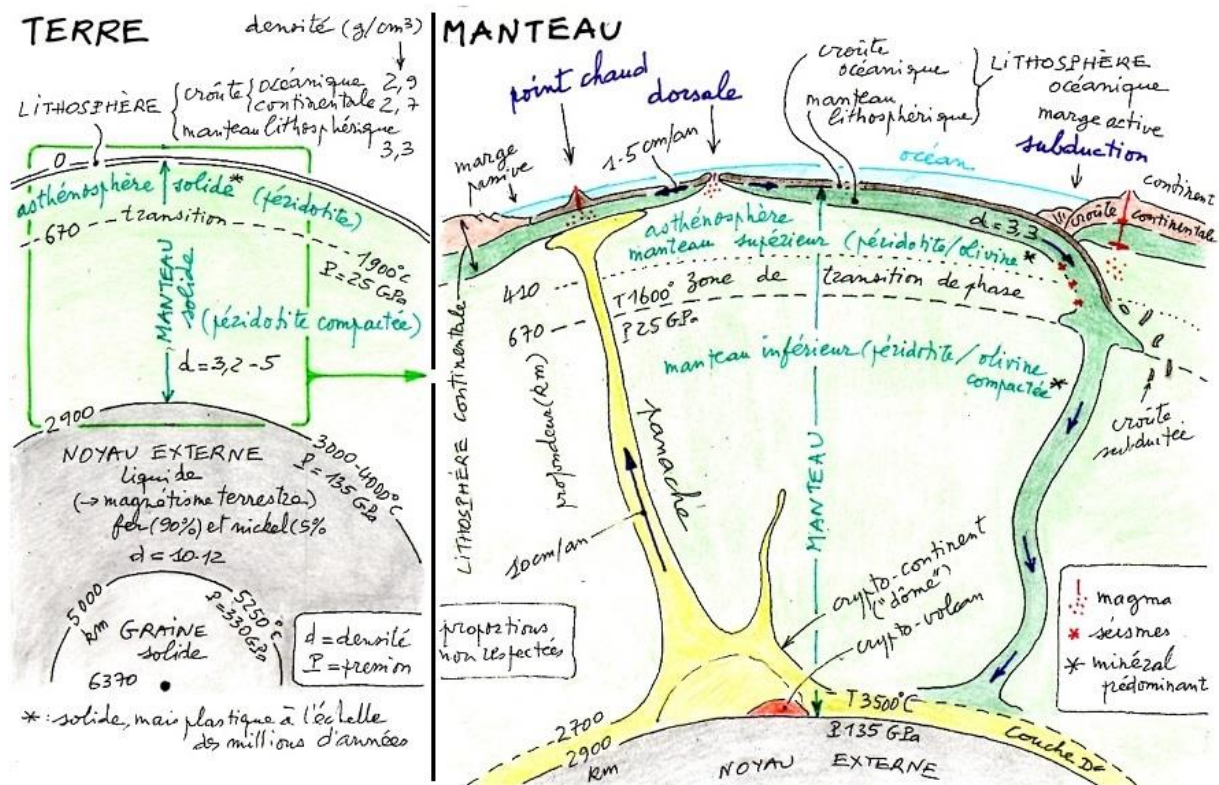 TERRE
densité (g/cm³)
LITHOSPHÈRE
croûte
océanique 2,9
continentale 2,7
manteau lithosphérique
3,3
0
asthénosphère
solide* (péridotite)
670
transition
1900°C
P=25 GPa
MANTEAU
solide
(péridotite compactée)
d=3,2-5
2900
NOYAU EXTERNE
liquide
(→ magnétisme terrestre)
fer (90%) et nickel (5%
d=10-12
3000-4000°C
P=135 GPa
5000
km
5250°C
P=330 GPa
GRAINE
solide
6370
d=densité
P=pression
*: solide, mais plastique à l'échelle
des millions d'années
MANTEAU
point chaud
dorsale
croûte
océanique
manteau
lithosphérique
LITHOSPHÈRE
océanique
marge active
subduction
marge
passive
1-5cm/an
océan
continent
croûte
continentale
asthénosphère
manteau supérieur (péridotite/olivine*
d=3,3
410
T1600°
zone de transition de phase
670
P25 GPa
manteau inférieur (péridotite/olivine
compactée*
LITHOSPHÈRE continentale
profondeur (km)
panache
10cm/an
MANTEAU
croûte
subduitée
crypto-continent
("dôme")
crypto-volcan
proportions
non respectées
magma
séismes
* minéral
prédominant
2700
2900
km
T3500°C
P135 GPa
couche D"
NOYAU EXTERNE